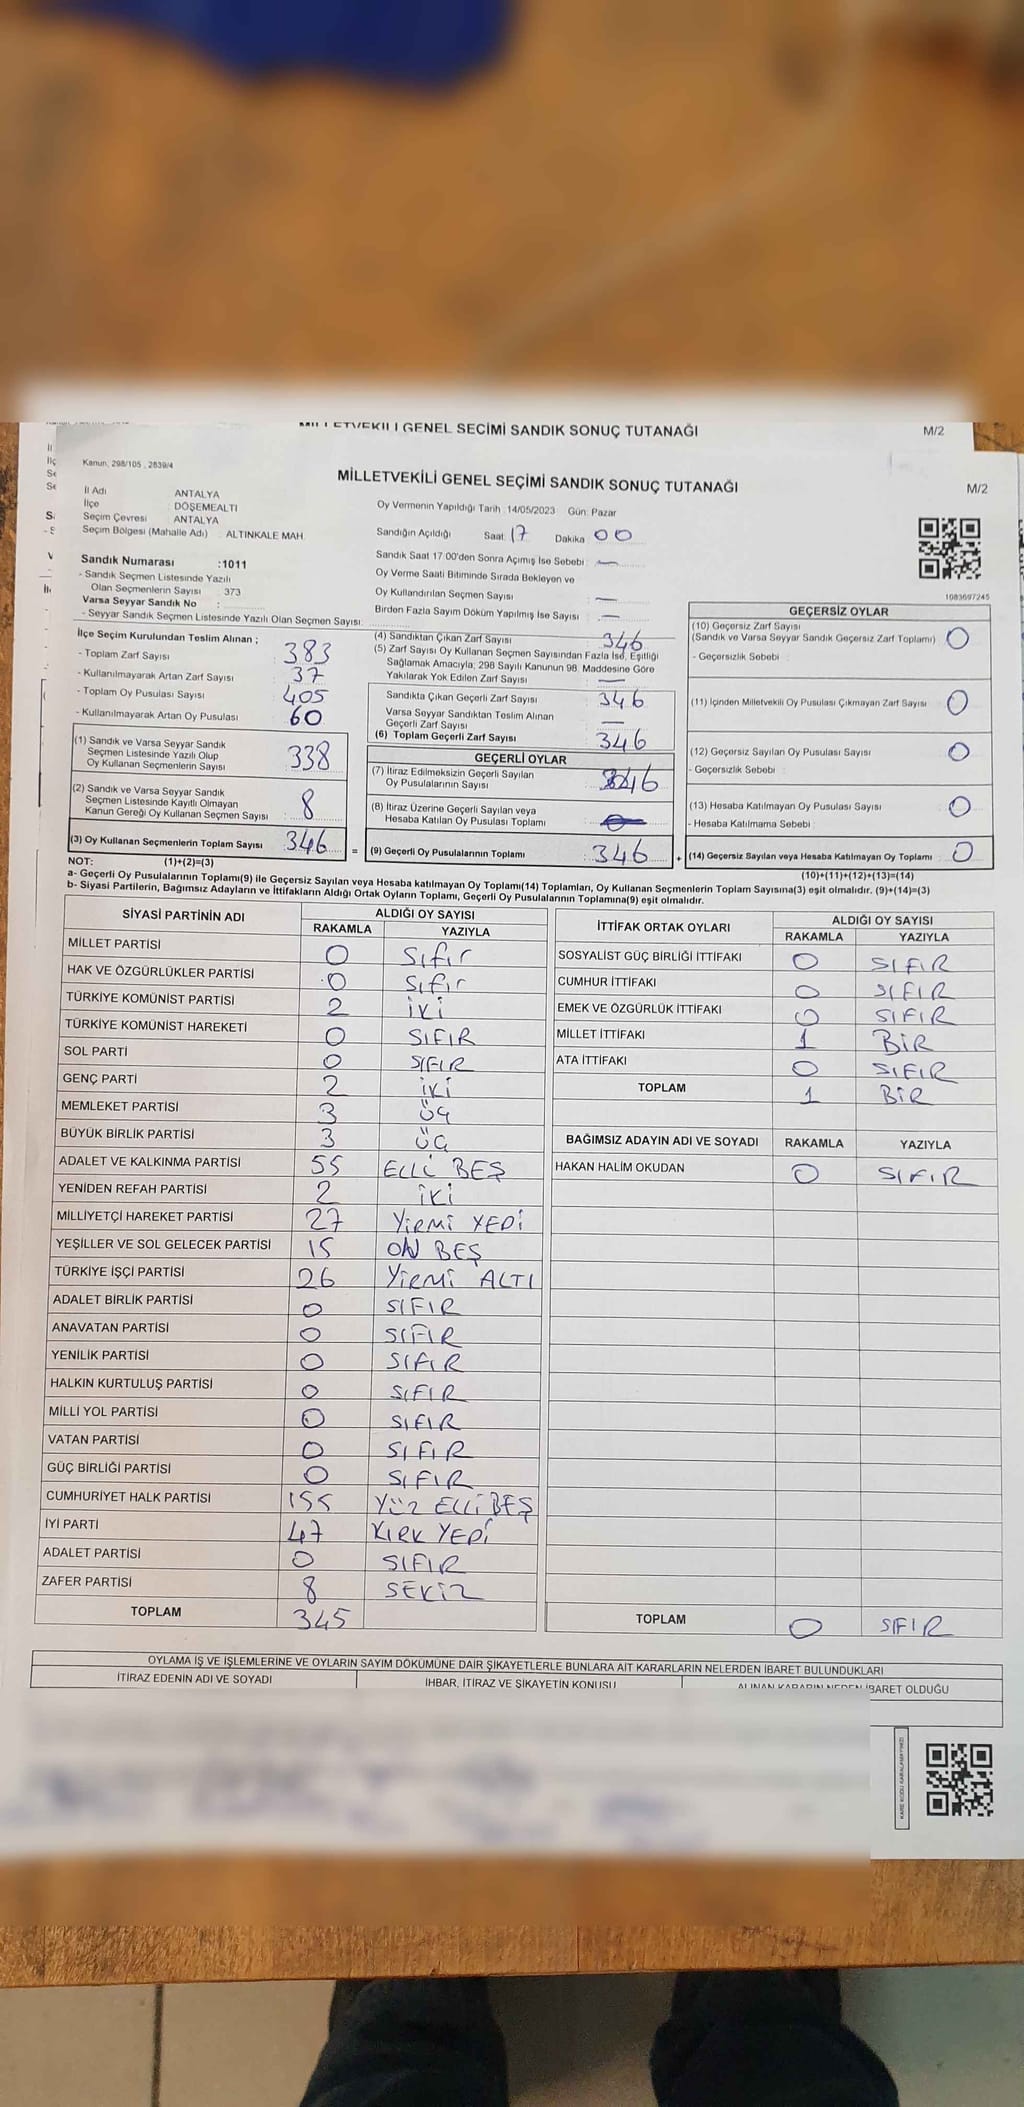 GENEL SEÇİMİ SANDIK SONUÇ TUTANAĞI
M/2
Kanun, 298/105 , 2839/4
MİLLETVEKİLİ GENEL SEÇİMİ SANDIK SONUÇ TUTANAĞI
M/2
İl Adı ANTALYA
İlçe : DÖŞEMEALTI
Seçim Çevresi : ANTALYA
Seçim Bölgesi (Mahalle Adı) : ALTINKALE MAH.
Oy Vermenin Yapıldığı Tarih :14/05/2023 Gün: Pazar
Sandığın Açıldığı Saat: 17 Dakika 00
Sandık Saat 17:00'den Sonra Açımış İse Sebebi : —
Oy Verme Saati Bitiminde Sırada Bekleyen ve
Oy Kullandırılan Seçmen Sayısı : —
Birden Fazla Sayım Döküm Yapılmış İse Sayısı : —
Sandık Numarası :1011
- Sandık Seçmen Listesinde Yazılı
Olan Seçmenlerin Sayısı : 373
Varsa Seyyar Sandık No :
- Seyyar Sandık Seçmen Listesinde Yazılı Olan Seçmen Sayısı:
1083697245
İlçe Seçim Kurulundan Teslim Alınan ;
- Toplam Zarf Sayısı : 383
- Kullanılmayarak Artan Zarf Sayısı : 37
- Toplam Oy Pusulası Sayısı : 405
- Kullanılmayarak Artan Oy Pusulası : 60
(1) Sandık ve Varsa Seyyar Sandık
Seçmen Listesinde Yazılı Olup
Oy Kullanan Seçmenlerin Sayısı : 338
(2) Sandık ve Varsa Seyyar Sandık
Seçmen Listesinde Kayıtlı Olmayan
Kanun Gereği Oy Kullanan Seçmen Sayısı : 8
(3) Oy Kullanan Seçmenlerin Toplam Sayısı : 346
(4) Sandıktan Çıkan Zarf Sayısı : 346
(5) Zarf Sayısı Oy Kullanan Seçmen Sayısından Fazla İse, Eşitliği
Sağlamak Amacıyla; 298 Sayılı Kanunun 98. Maddesine Göre
Yakılarak Yok Edilen Zarf Sayısı : —
Sandıkta Çıkan Geçerli Zarf Sayısı : 346
Varsa Seyyar Sandıktan Teslim Alınan
Geçerli Zarf Sayısı : —
(6) Toplam Geçerli Zarf Sayısı : 346
GEÇERLİ OYLAR
(7) İtiraz Edilmeksizin Geçerli Sayılan
Oy Pusulalarının Sayısı : 346
(8) İtiraz Üzerine Geçerli Sayılan veya
Hesaba Katılan Oy Pusulası Toplamı : 0
= (9) Geçerli Oy Pusulalarının Toplamı : 346
GEÇERSİZ OYLAR
(10) Geçersiz Zarf Sayısı
(Sandık ve Varsa Seyyar Sandık Geçersiz Zarf Toplamı) : 0
- Geçersizlik Sebebi :
(11) İçinden Milletvekili Oy Pusulası Çıkmayan Zarf Sayısı : 0
(12) Geçersiz Sayılan Oy Pusulası Sayısı : 0
- Geçersizlik Sebebi :
(13) Hesaba Katılmayan Oy Pusulası Sayısı : 0
- Hesaba Katılmama Sebebi :
+ (14) Geçersiz Sayılan veya Hesaba Katılmayan Oy Toplamı : 0
NOT: (1)+(2)=(3) (10)+(11)+(12)+(13)=(14)
a- Geçerli Oy Pusulalarının Toplamı(9) ile Geçersiz Sayılan veya Hesaba katılmayan Oy Toplamı(14) Toplamları, Oy Kullanan Seçmenlerin Toplam Sayısına(3) eşit olmalıdır. (9)+(14)=(3)
b- Siyasi Partilerin, Bağımsız Adayların ve İttifakların Aldığı Ortak Oyların Toplamı, Geçerli Oy Pusulalarının Toplamına(9) eşit olmalıdır.
SİYASİ PARTİNİN ADI ALDIĞI OY SAYISI
RAKAMLA YAZIYLA
MİLLET PARTİSİ 0 Sıfır
HAK VE ÖZGÜRLÜKLER PARTİSİ 0 Sıfır
TÜRKİYE KOMÜNİST PARTİSİ 2 iki
TÜRKİYE KOMÜNİST HAREKETİ 0 SIFIR
SOL PARTİ 0 SIFIR
GENÇ PARTİ 2 iKi
MEMLEKET PARTİSİ 3 ÜÇ
BÜYÜK BİRLİK PARTİSİ 3 ÜÇ
ADALET VE KALKINMA PARTİSİ 55 ELLİ BEŞ
YENİDEN REFAH PARTİSİ 2 iKi
MİLLİYETÇİ HAREKET PARTİSİ 27 YİRMİ YEDİ
YEŞİLLER VE SOL GELECEK PARTİSİ 15 ON BEŞ
TÜRKİYE İŞÇİ PARTİSİ 26 YİRMİ ALTI
ADALET BİRLİK PARTİSİ 0 SIFIR
ANAVATAN PARTİSİ 0 SIFIR
YENİLİK PARTİSİ 0 SIFIR
HALKIN KURTULUŞ PARTİSİ 0 SIFIR
MİLLİ YOL PARTİSİ 0 SIFIR
VATAN PARTİSİ 0 SIFIR
GÜÇ BİRLİĞİ PARTİSİ 0 SIFIR
CUMHURİYET HALK PARTİSİ 155 YÜZ ELLİ BEŞ
İYİ PARTİ 47 KIRK YEDİ
ADALET PARTİSİ 0 SIFIR
ZAFER PARTİSİ 8 SEKİZ
TOPLAM 345
İTTİFAK ORTAK OYLARI ALDIĞI OY SAYISI
RAKAMLA YAZIYLA
SOSYALİST GÜÇ BİRLİĞİ İTTİFAKI 0 SIFIR
CUMHUR İTTİFAKI 0 SIFIR
EMEK VE ÖZGÜRLÜK İTTİFAKI 0 SIFIR
MİLLET İTTİFAKI 1 BİR
ATA İTTİFAKI 0 SIFIR
TOPLAM 1 BİR
BAĞIMSIZ ADAYIN ADI VE SOYADI RAKAMLA YAZIYLA
HAKAN HALİM OKUDAN 0 SIFIR
TOPLAM 0 SIFIR
OYLAMA İŞ VE İŞLEMLERİNE VE OYLARIN SAYIM DÖKÜMÜNE DAİR ŞİKAYETLERLE BUNLARA AİT KARARLARIN NELERDEN İBARET BULUNDUKLARI
İTİRAZ EDENİN ADI VE SOYADI İHBAR, İTİRAZ VE ŞİKAYETİN KONUSU ALINAN KARARIN NEDEN İBARET OLDUĞU